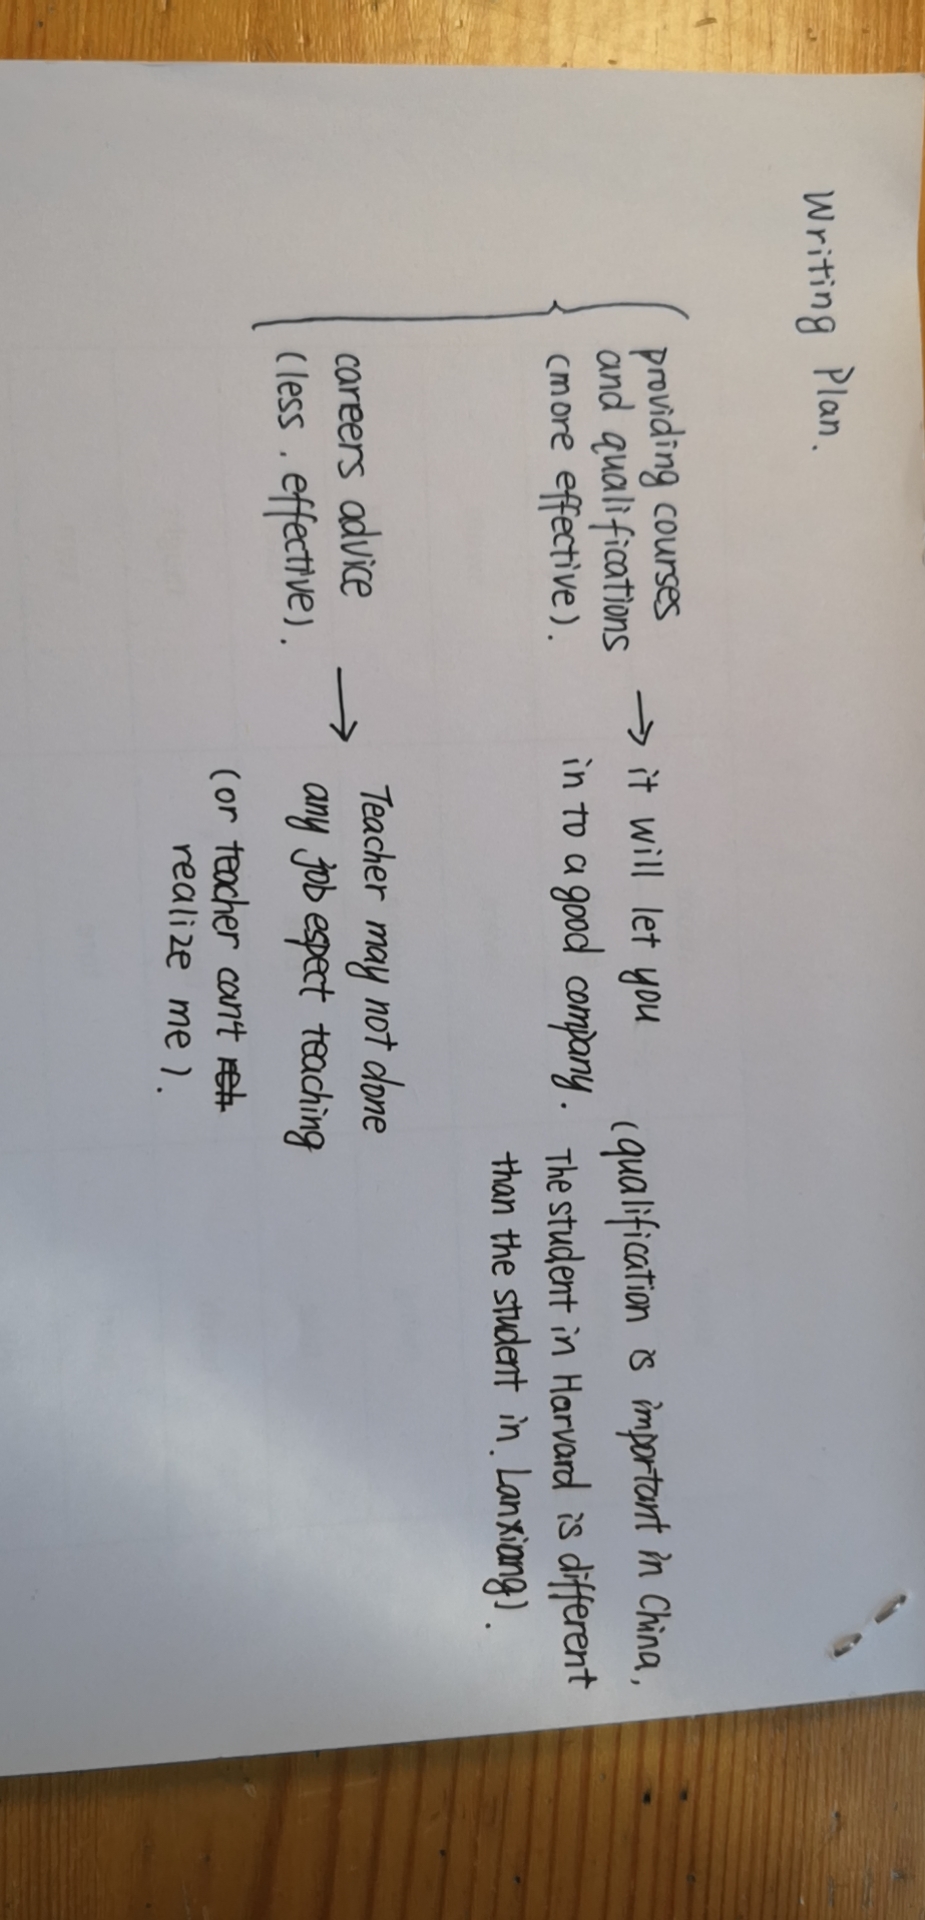 Writing Plan.
providing courses
and qualifications
(more effective).
→ it will let you
in to a good company.
(qualification is important in China,
The student in Harvard is different
than the student in. Lanxiang).
careers advice
(less. effective).
→ Teacher may not done
any job espect teaching
(or teacher can't
realize me).